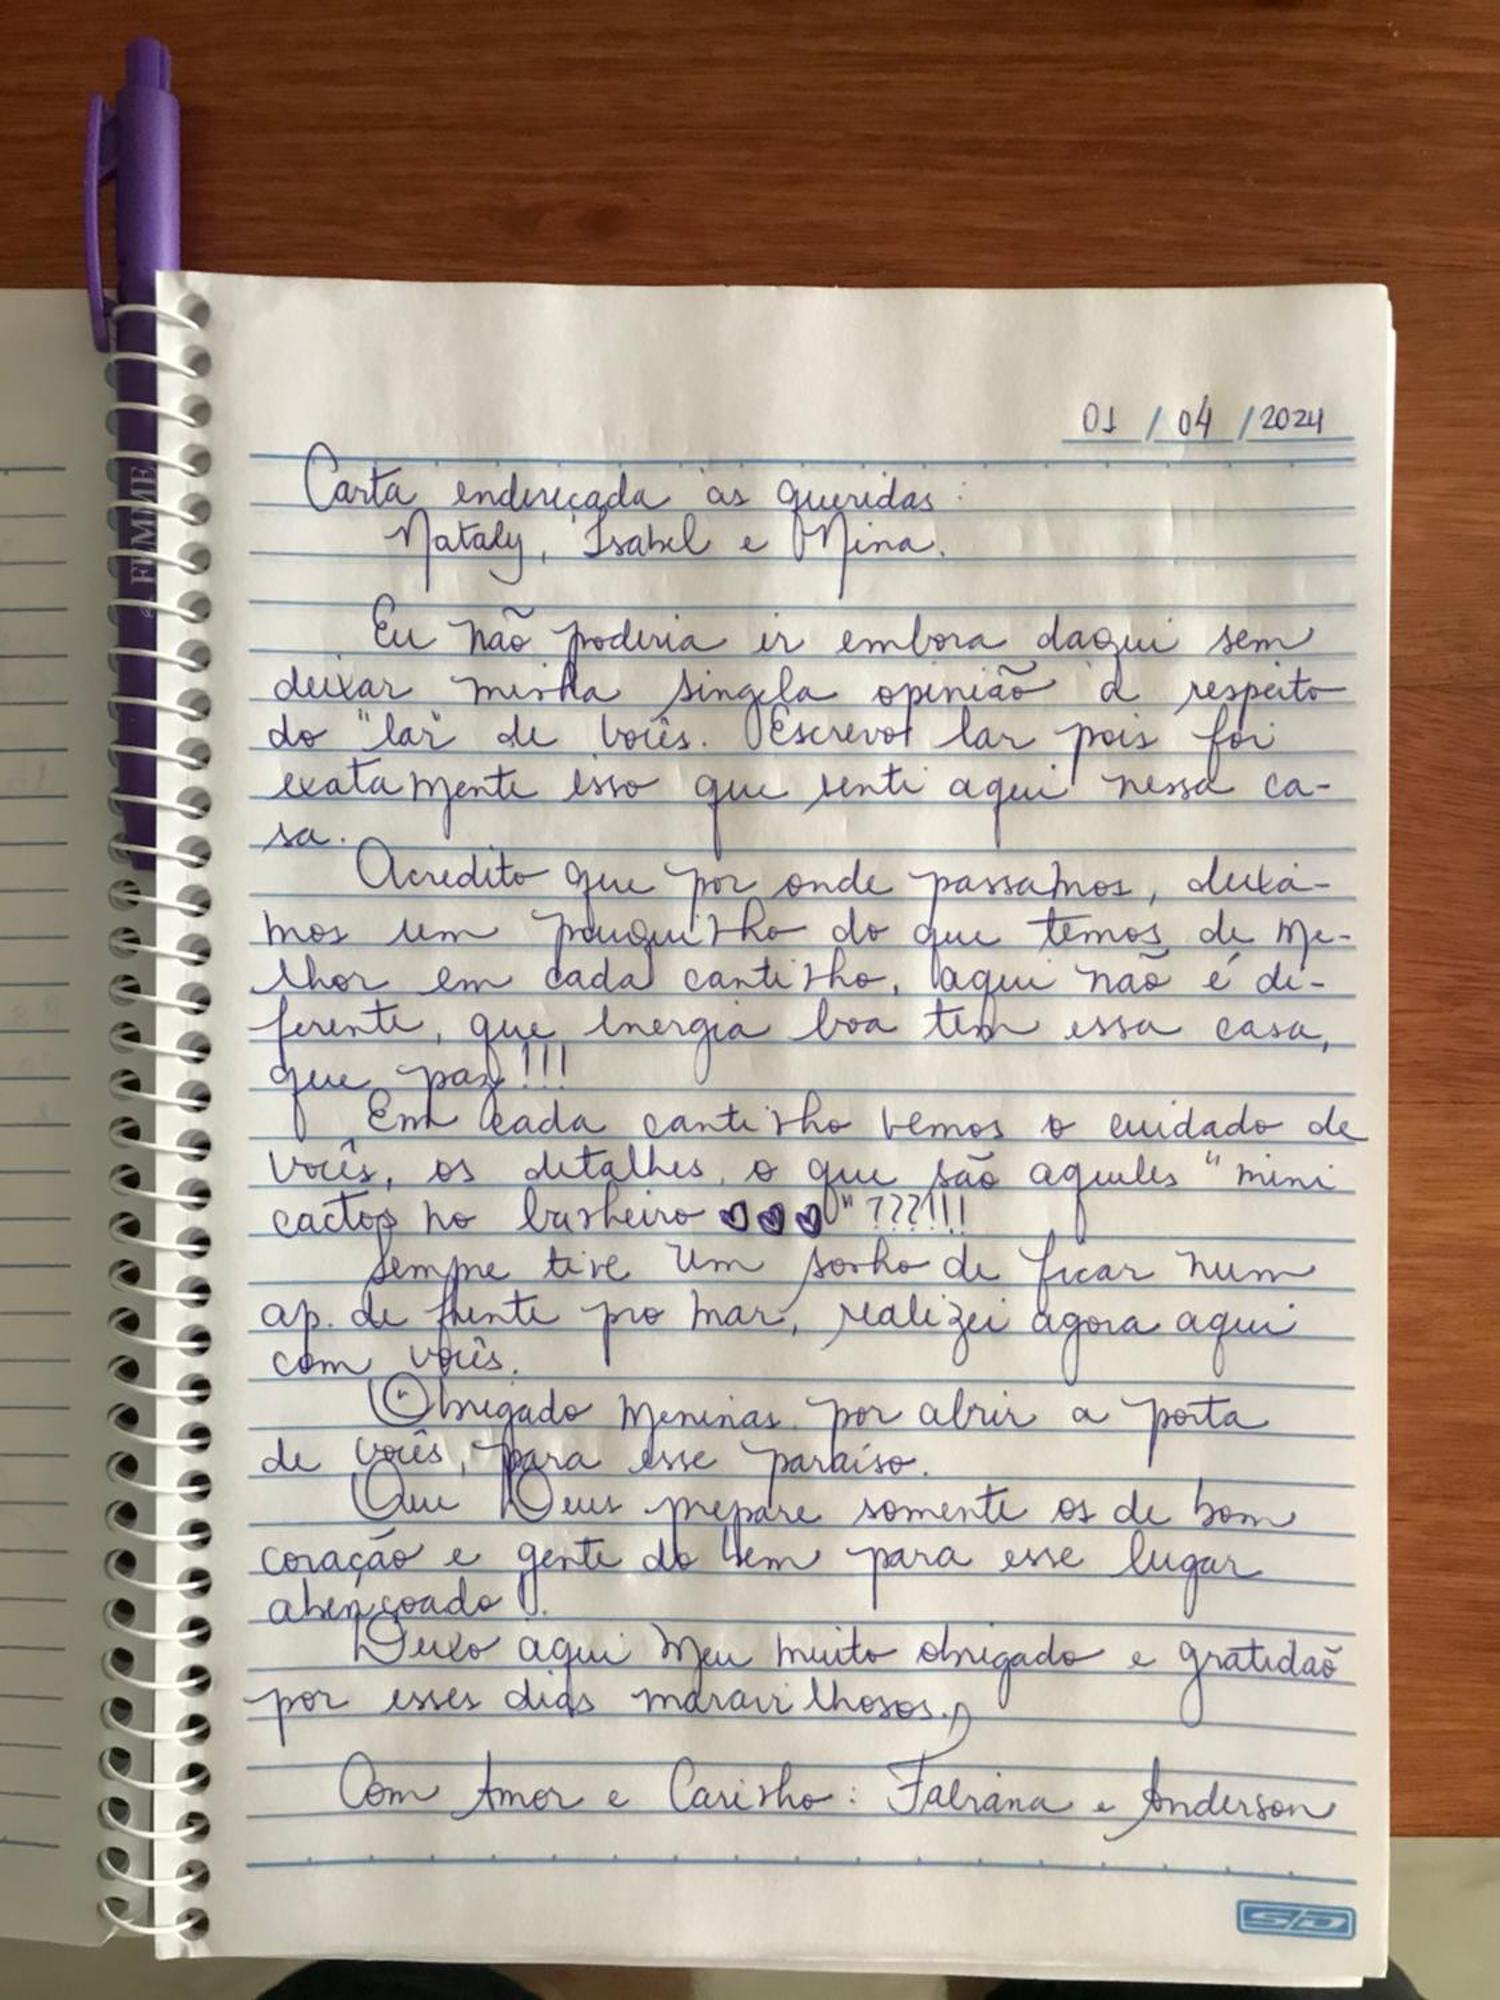 FEMME
01 / 04 / 2024
Carta endereçada às queridas:
Nataly, Isabel e Nina.
Eu não poderia ir embora daqui sem
deixar minha singela opinião à respeito
do "lar" de vocês. Escrevo lar pois foi
exatamente isso que senti aqui nessa ca-
sa.
Acredito que por onde passamos, deixa-
mos um pouquinho do que temos de me-
lhor em cada cantinho, aqui não é di-
ferente, que energia boa tem essa casa,
que paz!!!
Em cada cantinho vemos o cuidado de
vocês, os detalhes, o que são aqueles "mini
cactos no banheiro ♡♡♡"???!!!
Sempre tive um sonho de ficar num
ap. de frente pro mar, realizei agora aqui
com vocês.
Obrigado meninas por abrir a porta
de vocês, para esse paraíso.
Que Deus prepare somente os de bom
coração e gente do bem para esse lugar
abençoado.
Deixo aqui meu muito obrigado e gratidão
por esses dias maravilhosos.
Com Amor e Carinho: Fabiana e Anderson
SD